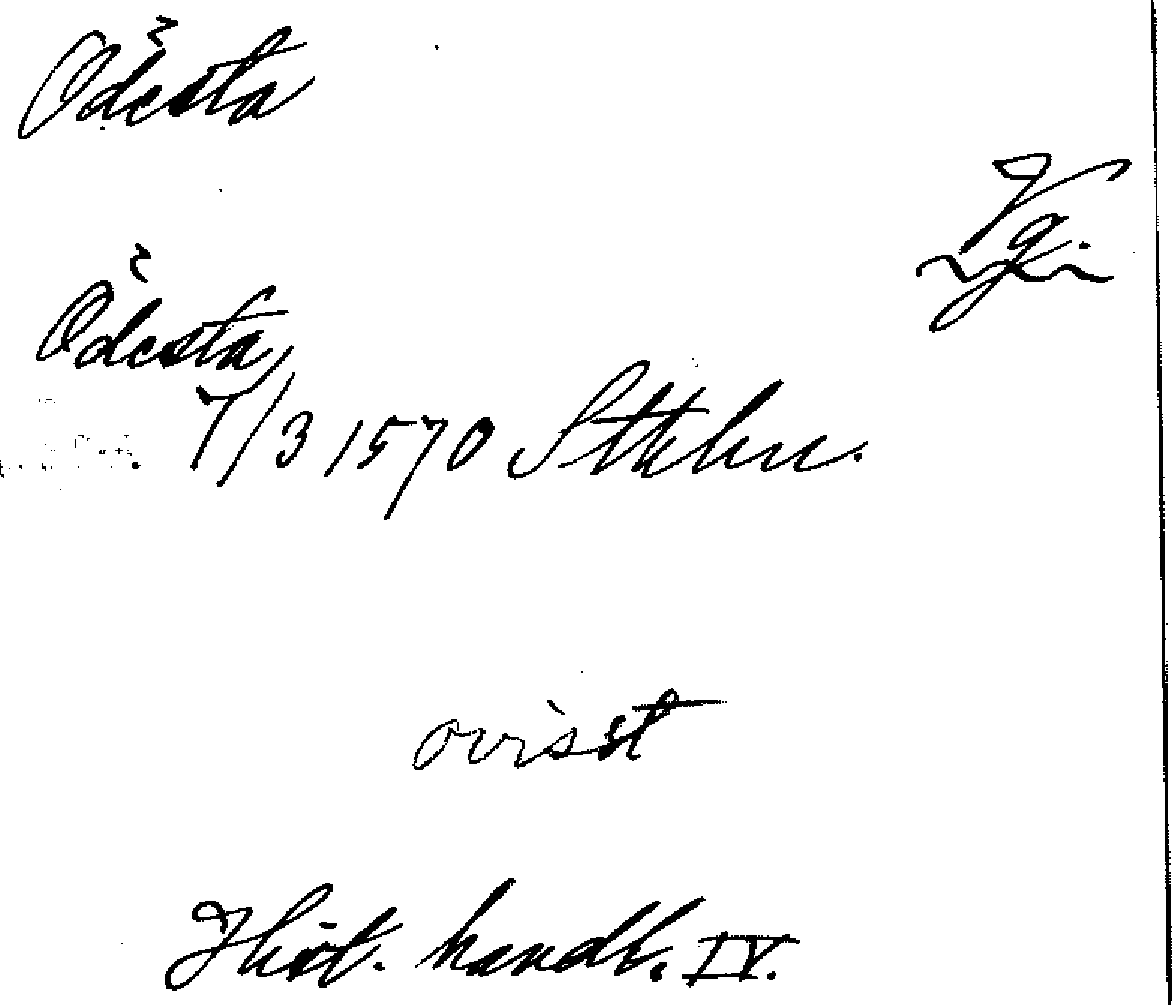 Ödesta
Vg.
Ödesta
7/3 1570 Sthlm.
ovisst
Hist. handl. IV.